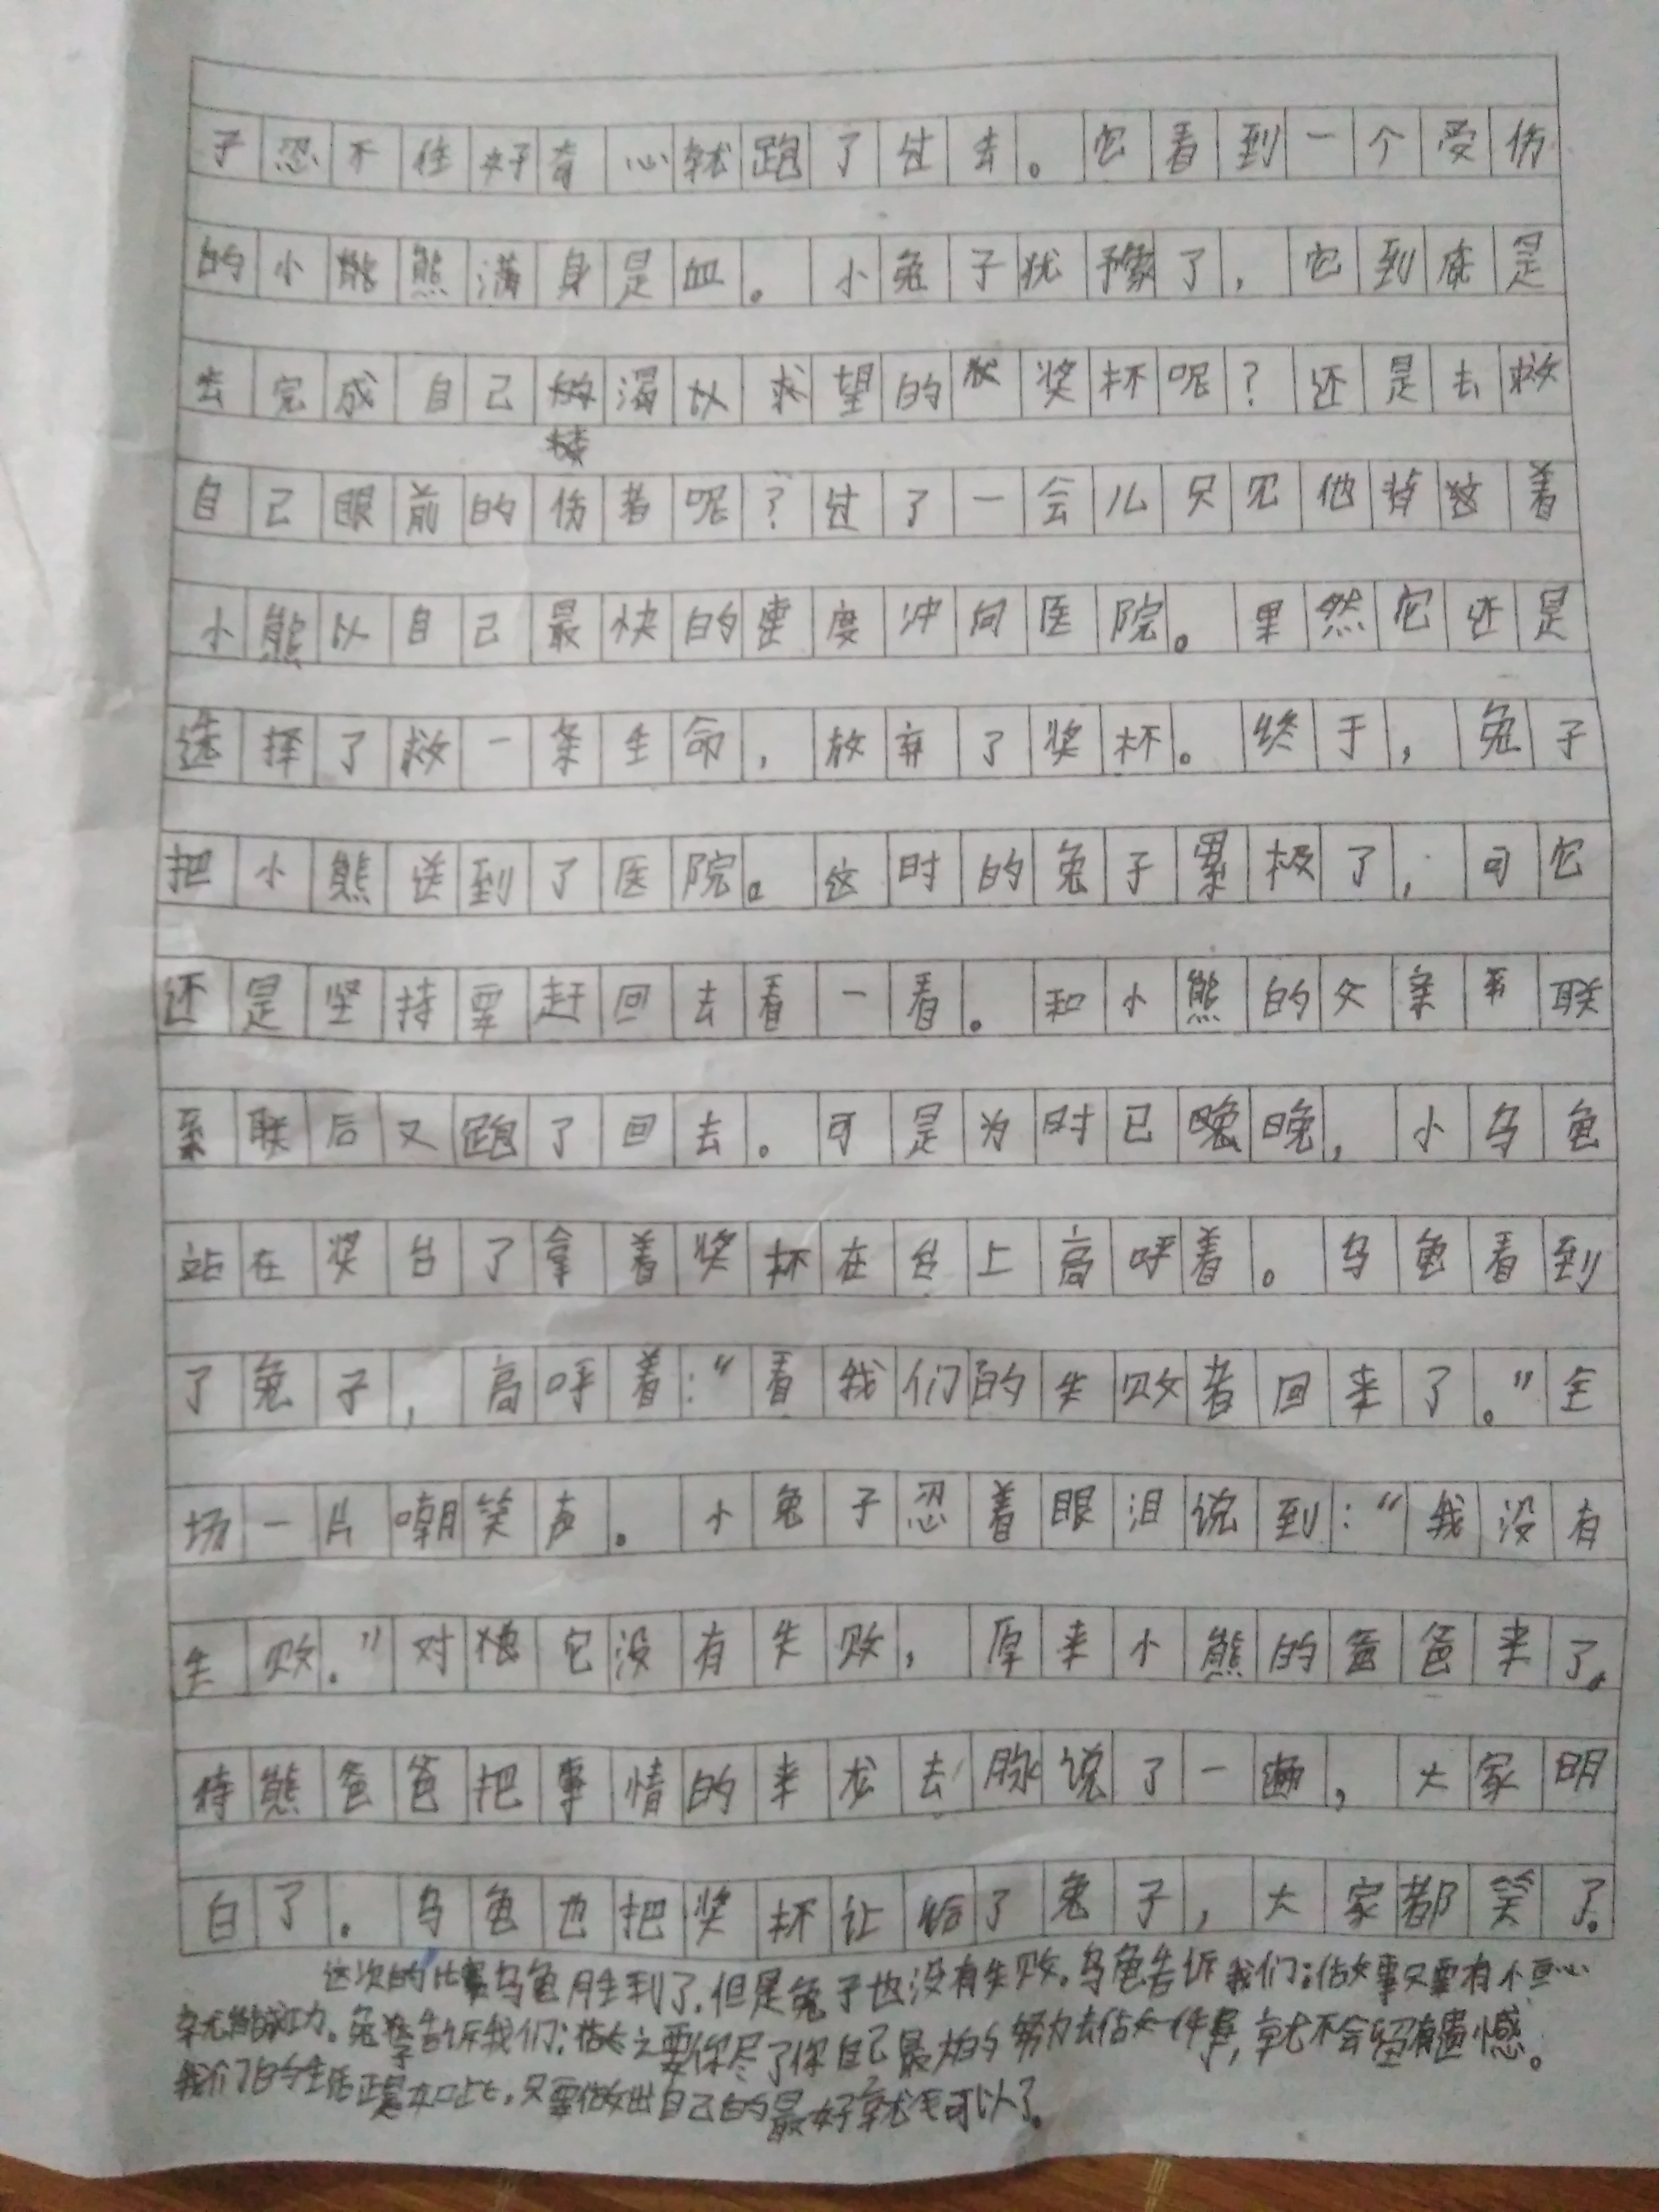 子忍不住好奇心就跑了过去。它看到一个受伤
的小熊熊满身是血。小兔子犹豫了，它到底是
去完成自己渴以求望的奖杯呢？还是去救
自己眼前的伤者呢？过了一会儿只见他背着
小熊以自己最快的速度冲向医院。果然它还是
选择了救一条生命，放弃了奖杯。终于，兔子
把小熊送到了医院。这时的兔子累极了，可它
还是坚持要赶回去看一看。和小熊的父亲联
系联后又跑了回去。可是为时已晚晚，小乌龟
站在奖台了拿着奖杯在台上高呼着。乌龟看到
了兔子，高呼着：“看我们的失败者回来了。”全
场一片嘲笑声。小兔子忍着眼泪说到：“我没有
失败。”对它没有失败，原来小熊的爸爸来了。
待熊爸爸把事情的来龙去脉说了一遍，大家明
白了。乌龟也把奖杯让给了兔子，大家都笑了。
这次的比赛乌龟胜利了，但是兔子也没有失败。乌龟告诉我们：做事只要有恒心
就能成功。兔子告诉我们：只要你尽了你自己最大的努力去做一件事，就不会留有遗憾。
我们的生活正是如此，只要做出自己的最好就可以了。